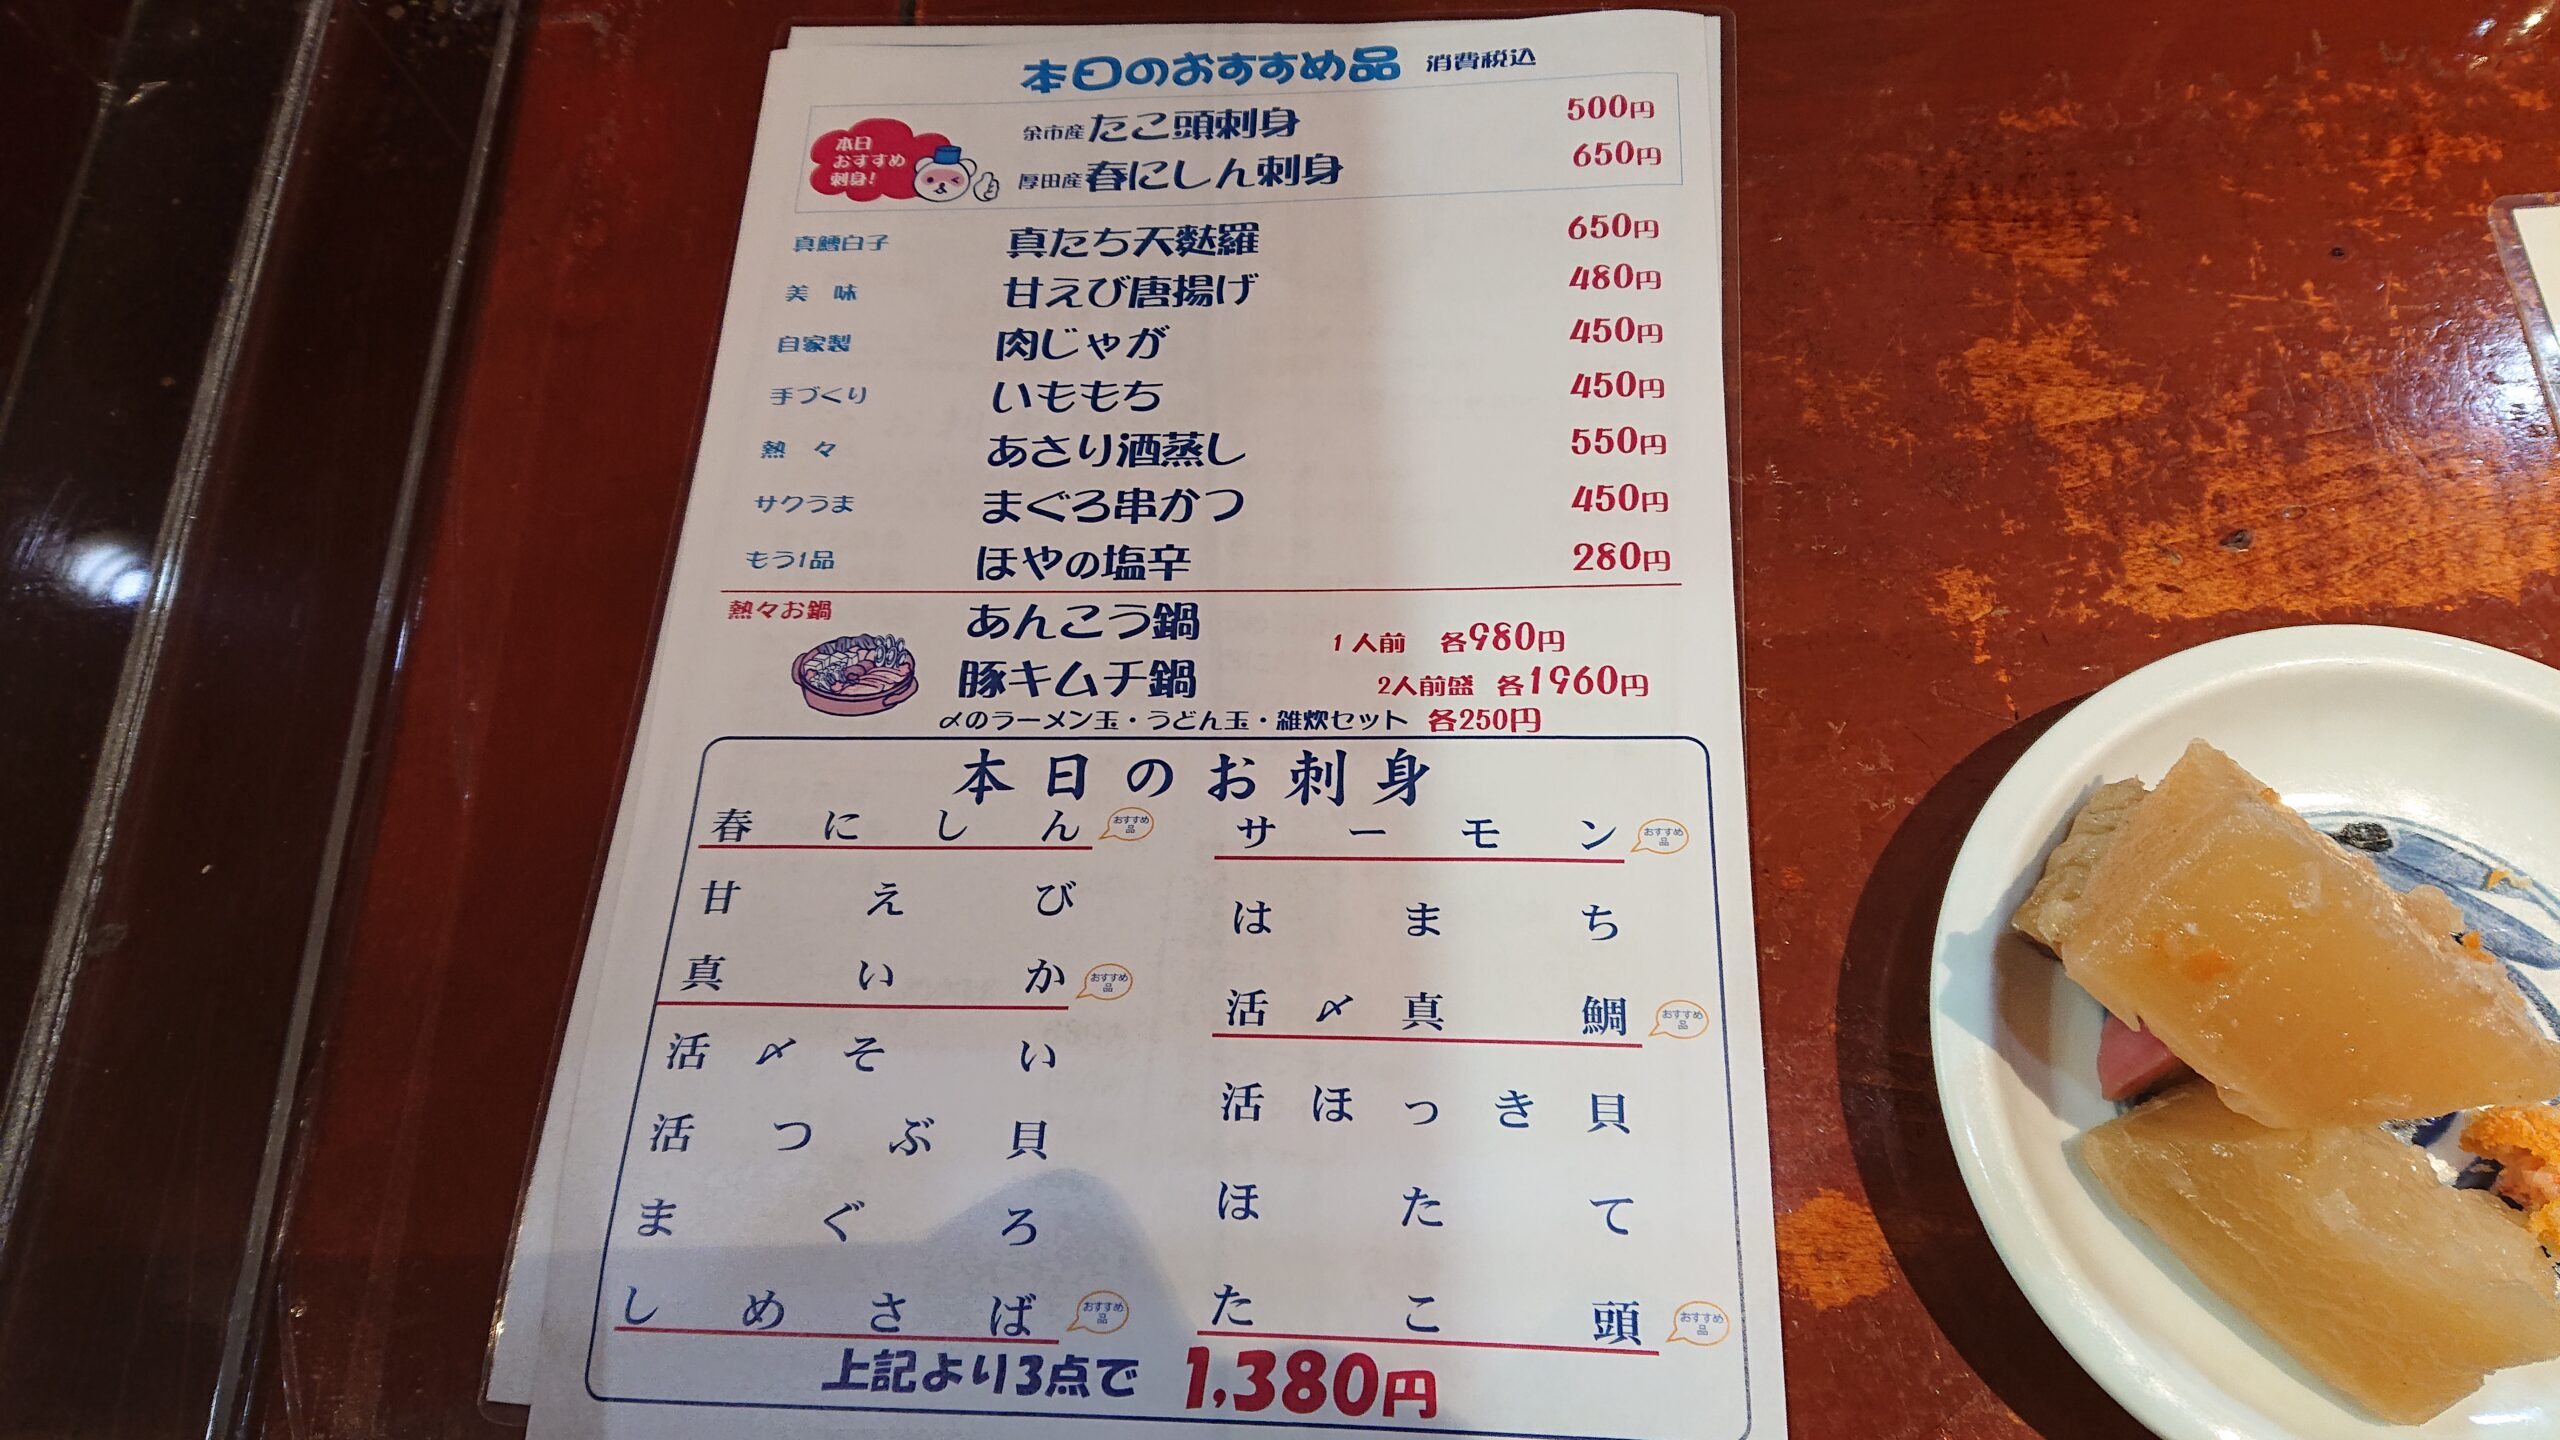 本日のおすすめ品 消費税込
本日
おすすめ
刺身!
余市産 たこ頭刺身 500円
厚田産 春にしん刺身 650円
真鱈白子 真たち天麩羅 650円
美 味 甘えび唐揚げ 480円
自家製 肉じゃが 450円
手づくり いももち 450円
熱 々 あさり酒蒸し 550円
サクうま まぐろ串かつ 450円
もう1品 ほやの塩辛 280円
熱々お鍋
あんこう鍋 1人前 各980円
豚キムチ鍋 2人前盛 各1960円
〆のラーメン玉・うどん玉・雑炊セット 各250円
本日のお刺身
春にしん おすすめ品
甘えび
真いか おすすめ品
活〆そい
活つぶ貝
まぐろ
しめさば おすすめ品
サーモン おすすめ品
はまち
活〆真鯛 おすすめ品
活ほっき貝
ほたて
たこ頭 おすすめ品
上記より3点で 1,380円